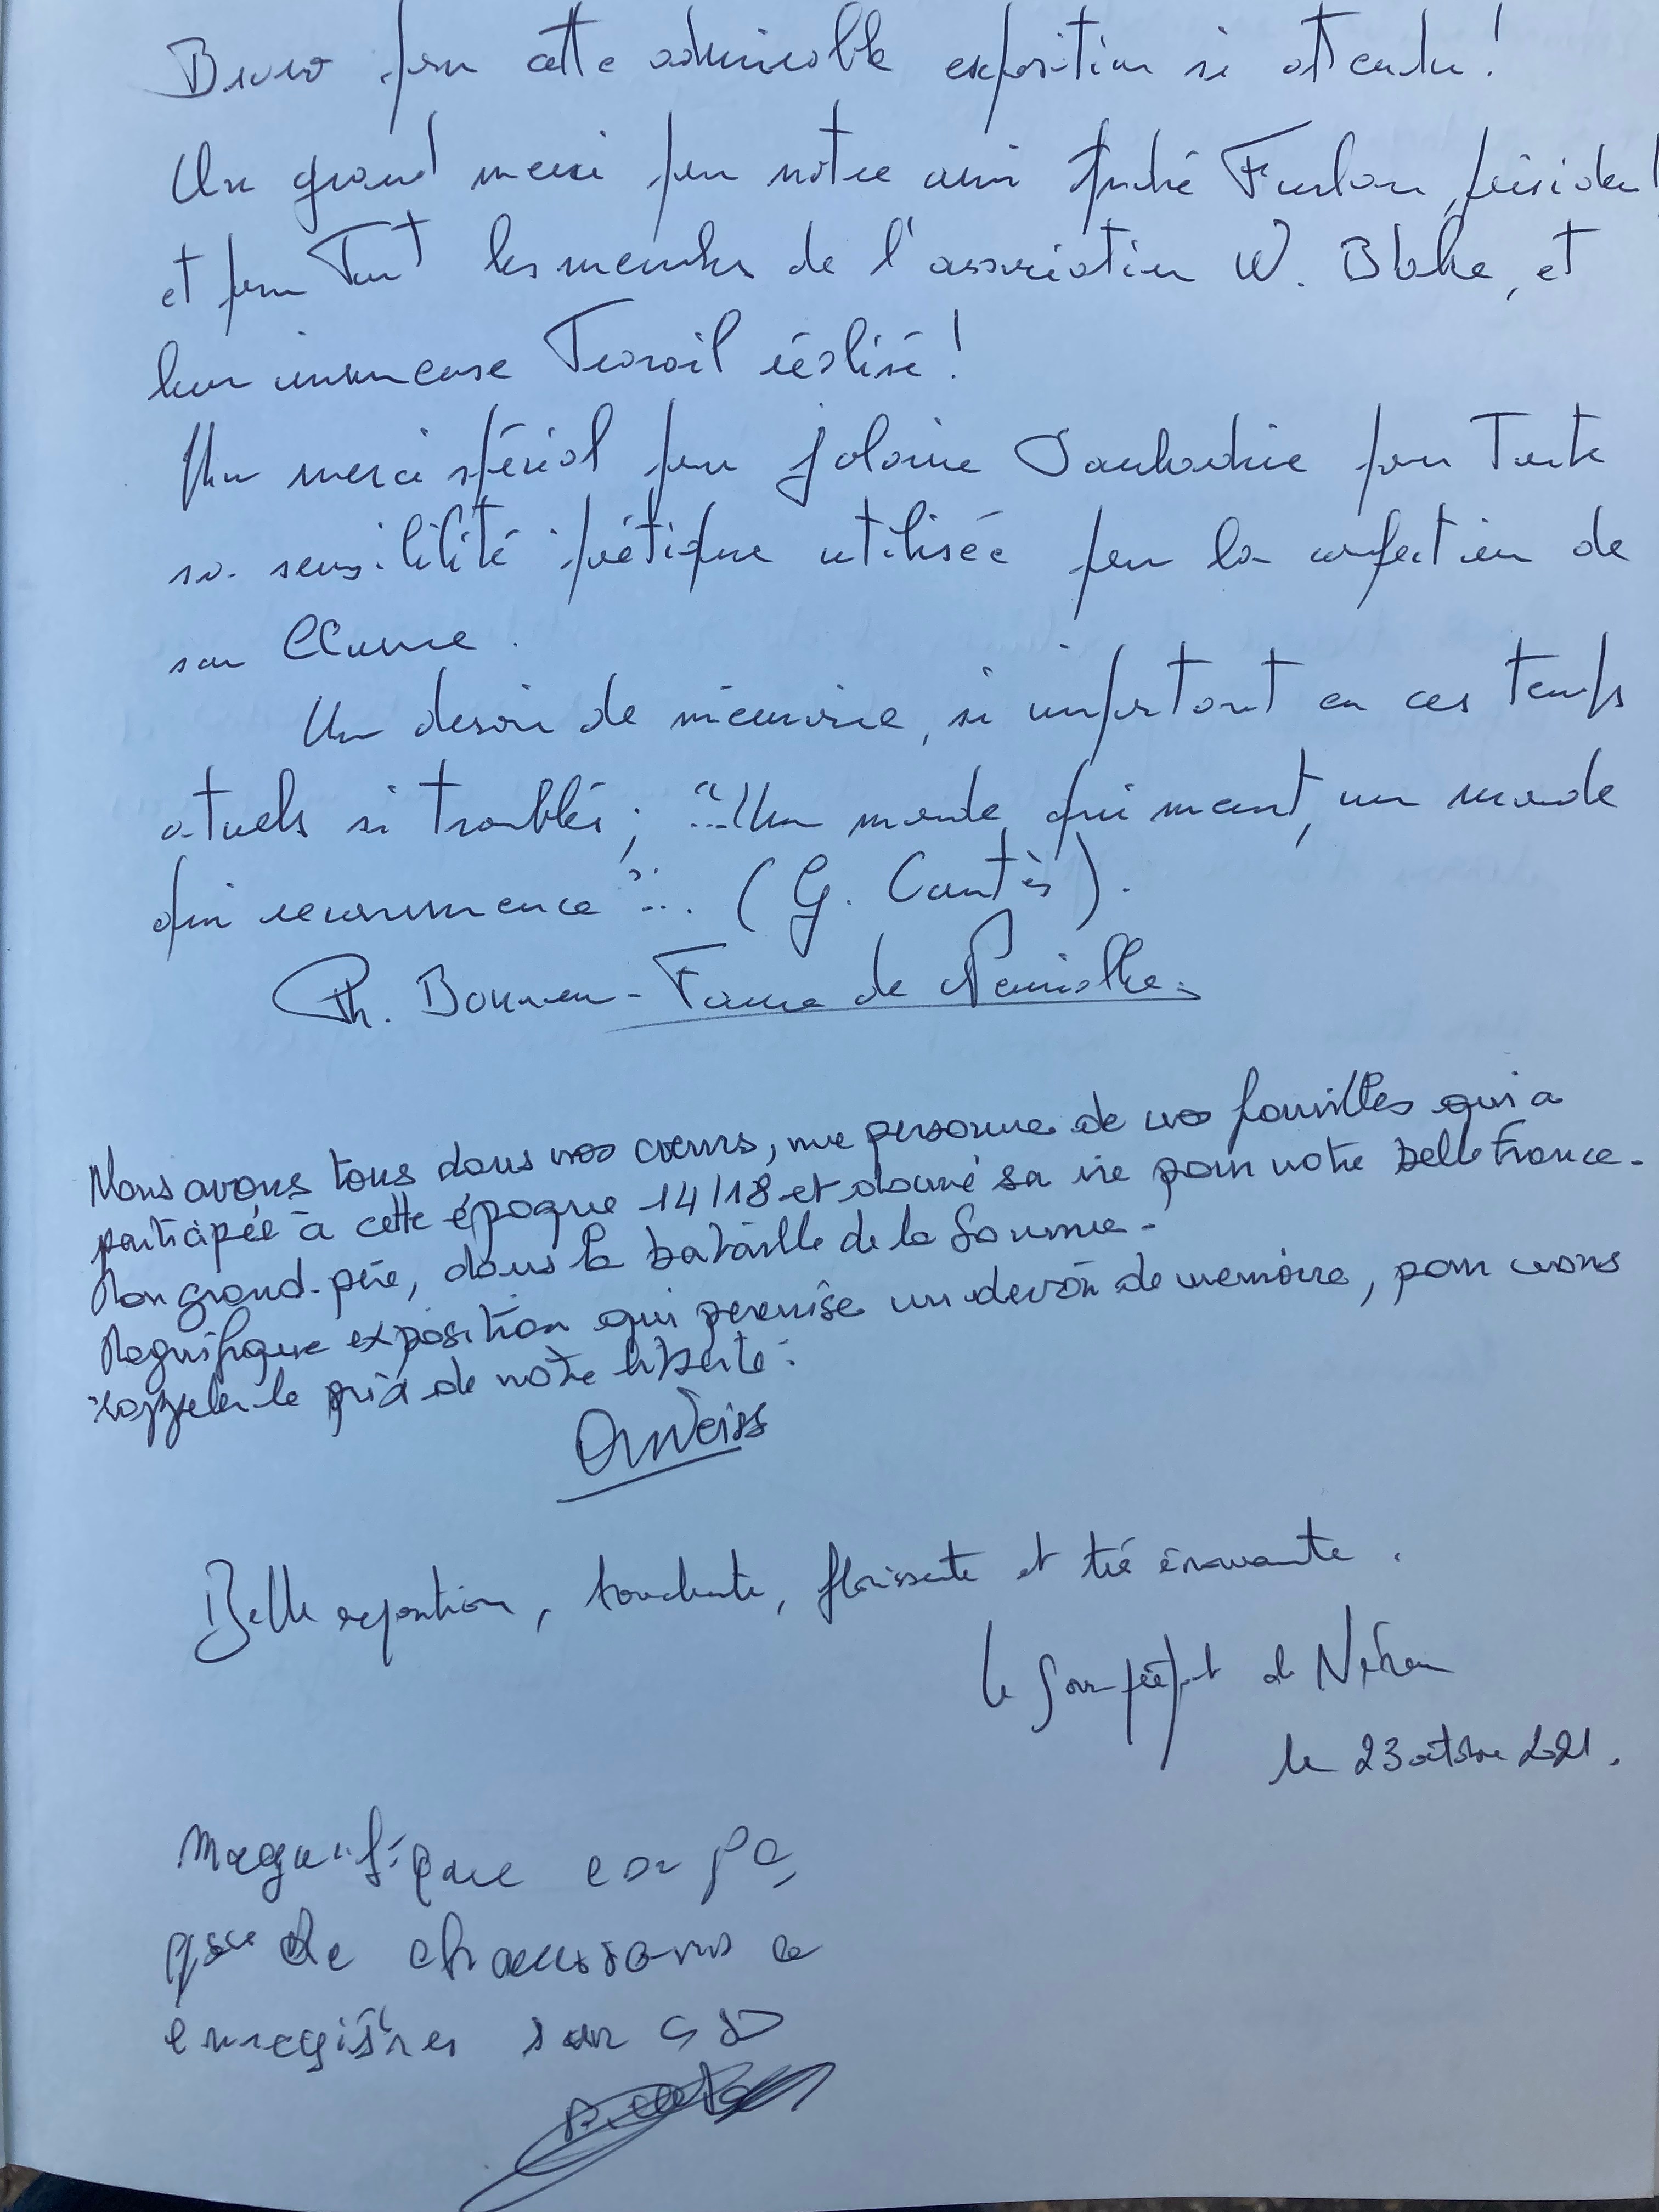 Bravo pour cette admirable exposition si attendue !
Un grand merci pour notre ami André Furlan, président
et pour tout les membres de l'association W. Blake, et
leur immense Travail réalisé !
Un merci spécial pour pour Toute
sa sensibilité poétique utilisée pour la confection de
son œuvre.
Un devoir de mémoire, si important en ces temps
actuels si troublés ; "...Un monde qui meurt, un monde
qui recommence"... (G. Cantès).
Ph. Bonnen-Faure de
Nous avons tous dans nos cœurs, une personne de nos familles qui a
participée à cette époque 14/18 et donné sa vie pour notre belle France.
Mon grand-père, dans la bataille de la Somme.
Magnifique exposition qui perenise un devoir de memoire, pour nous
rappeler le prix de notre liberté.
Weiss
Belle exposition, touchante, et très émouvante.
Le Sous-préfet de
le 23 octobre 2021.
Magnifique
de chansons a
enregistrer sur CD